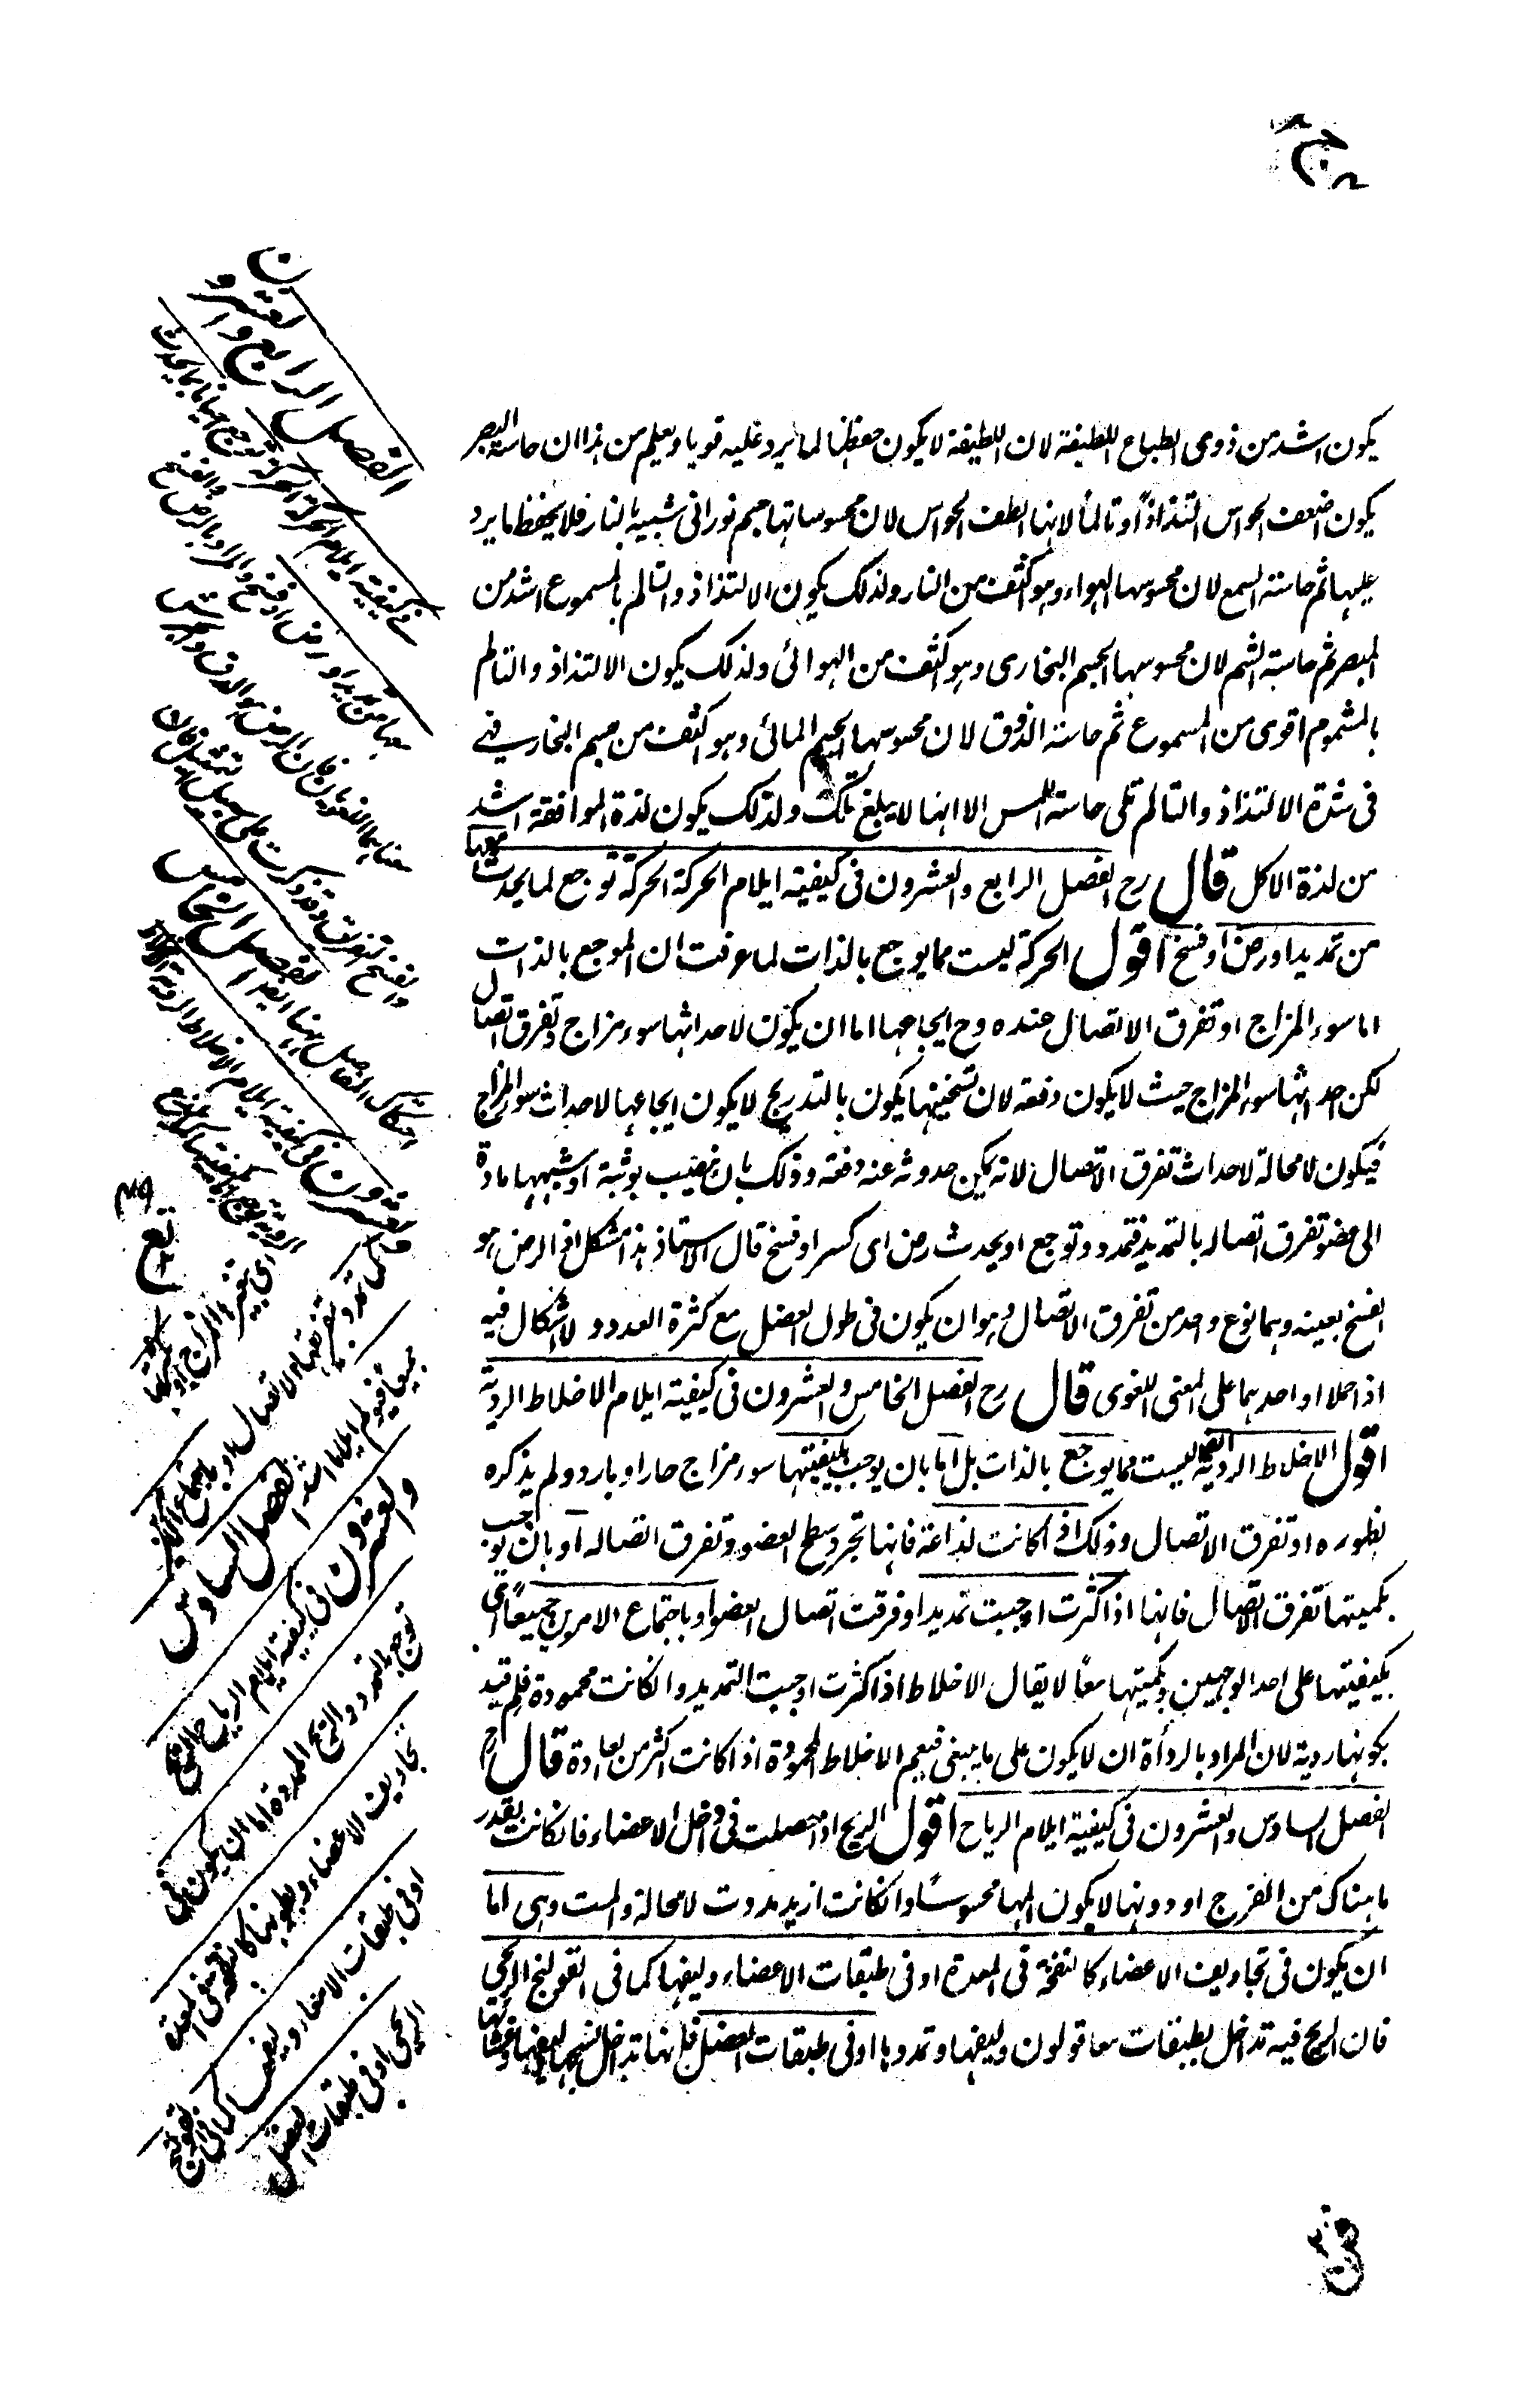 يكون اشد من ذوى الطباع اللطيفة لان اللطيفة لا يكون حفظها لما يرد عليه قويا و يعلم من هذا ان حاسة البصر
يكون اضعف الحواس التذاذاً او تالماً لانها الطف الحواس لان محسوساتها جسم نورانى شبيه بالنار فلا يحفظ ما يرد
عليها ثم حاسة السمع لان محسوسها الهواء و هو اكثف من النار ولذلك يكون الالتذاذ والتالم بالمسموع اشد من
المبصر ثم حاسة الشم لان محسوسها الجسم البخارى و هو اكثف من الهوائى ولذلك يكون الالتذاذ والتالم
بالمشموم اقوى من المسموع ثم حاسة الذوق لان محسوسها الجسم المائى و هو اكثف من جسم البخار فهى
فى شدة الالتذاذ والتالم تلى حاسة اللمس الا انها لا يبلغ تلك ولذلك يكون لذة الموافقة اشد
من لذة الاكل قال رح الفصل الرابع والعشرون فى كيفية ايلام الحركة الحركة توجع لما يحدث معها
من تمديد او رض او فسخ اقول الحركة ليست مما يوجع بالذات لما عرفت ان الموجع بالذات
اما سوء المزاج او تفرق الاتصال عنده و ح ايجاعها اما ان يكون لاحداثها سوء مزاج و تفرق اتصال
لكن احداثها سوء المزاج حيث لا يكون دفعة لان تسخينها يكون بالتدريج لا يكون ايجاعها لاحداث سوء المزاج
فيكون لا محالة لاحداث تفرق الاتصال لانه يمكن حدوثه عنه دفعة وذلك بان يصيب بوثبة او شبهها مادة
الى عضو تفرق اتصاله بالتمديد فتمدد و توجع او يحدث رض اى كسر او فسخ قال الاستاذ هذا مشكل اذ الرض هو
الفسخ بعينه و هما نوع واحد من تفرق الاتصال و هو ان يكون فى طول العضل مع كثرة العدد و لا اشكال فيه
اذا حملا او احدهما على المعنى اللغوى قال رح الفصل الخامس والعشرون فى كيفية ايلام الاخلاط الردية
اقول الاخلاط الردية ليست مما يوجع بالذات بل اما بان يوجب بكيفيتها سوء مزاج حار او بارد و لم يذكره
لظهوره او تفرق الاتصال وذلك اذا كانت لذاعة فانها تجرد سطح العضو و تفرق اتصاله او بان توجب
بكميتها تفرق الاتصال فانها اذا كثرت اوجبت تمديدا و فرقت اتصال العضو او باجتماع الامرين جميعاً اى
بكيفيتها على احد الوجهين و بكميتها معاً لا يقال الاخلاط اذا كثرت اوجبت التمديد و انكانت محمودة فلم قيد
بكونها ردية لان المراد بالردأة ان لا يكون على ما ينبغى فيعم الاخلاط المحمودة اذا كانت اكثر من العادة قال رح
الفصل السادس والعشرون فى كيفية ايلام الرياح اقول الريح اذا حصلت فى داخل الاعضاء فان كانت بقدر
ما هناك من الفرج او دونها لا يكون المها محسوسًا و انكانت ازيد مددت لا محالة والمت و هى اما
ان يكون فى تجاويف الاعضاء كالنفخة فى المعدة او فى طبقات الاعضاء وليفها كما فى القولنج الريحى
فان الريح فيه تداخل طبقات معا قولون وليفها و تمددها او فى طبقات العضل
الفصل الرابع والعشرون
فى كيفية ايلام الحركة الحركة توجع
الفصل الخامس
والعشرون فى كيفية ايلام الاخلاط الردية
الفصل السادس
والعشرون فى كيفية ايلام الرياح الريح
توجع بالتمدد والريح الممددة اما ان يكون فى
تجاويف الاعضاء و بطونها كالنفخة فى المعدة
او فى طبقات الامعاء و ليفها كما فى القولنج
الريحى او فى طبقات العضل